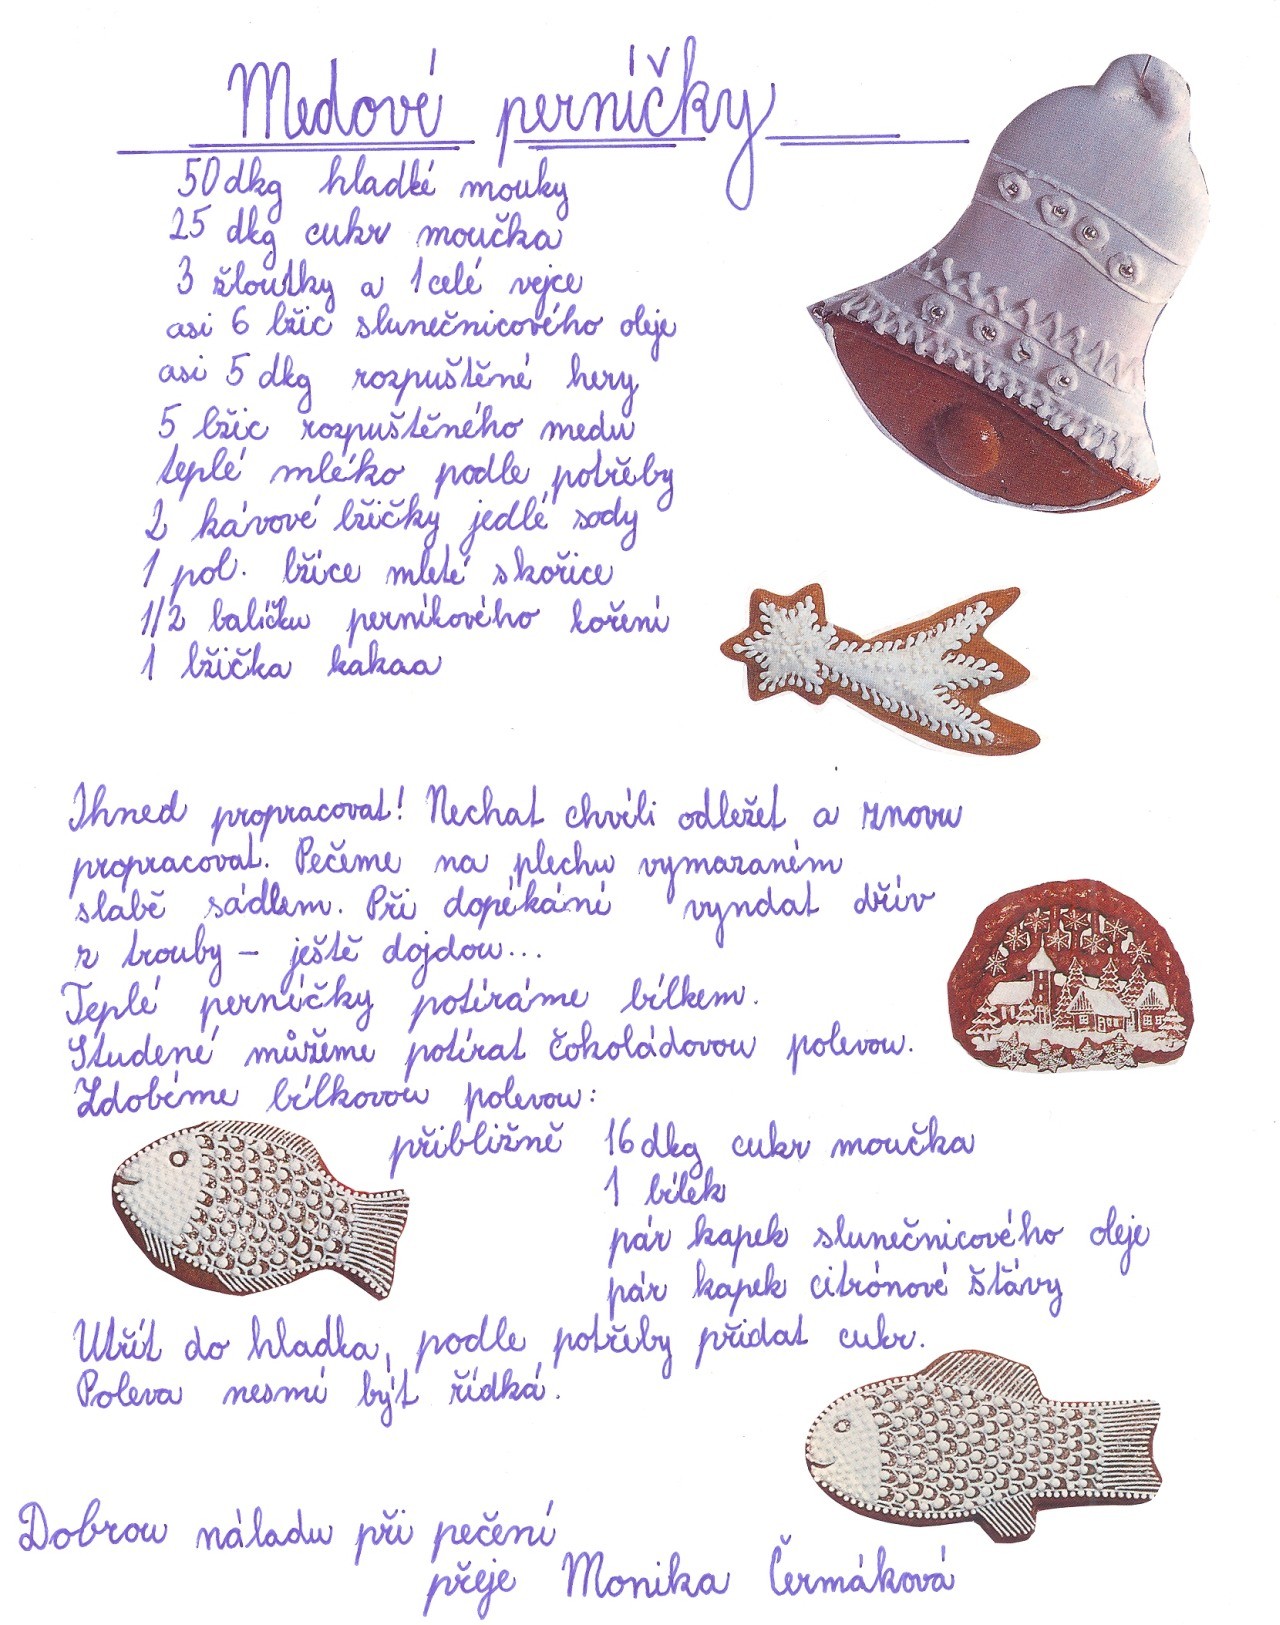 Medové perníčky
50 dkg hladké mouky
25 dkg cukr moučka
3 žloutky a 1 celé vejce
asi 6 lžic slunečnicového oleje
asi 5 dkg rozpuštěné hery
5 lžic rozpuštěného medu
teplé mléko podle potřeby
2 kávové lžičky jedlé sody
1 pol. lžíce mleté skořice
1/2 balíčku perníkového koření
1 lžička kakaa
Ihned propracovat! Nechat chvíli odležet a znovu
propracovat. Pečeme na plechu vymazaném
slabě sádlem. Při dopékání vyndat dřív
z trouby – ještě dojdou...
Teplé perníčky potíráme bílkem.
Studené můžeme potírat čokoládovou polevou.
Zdobíme bílkovou polevou:
přibližně 16 dkg cukr moučka
1 bílek
pár kapek slunečnicového oleje
pár kapek citrónové šťávy
Utřít do hladka, podle potřeby přidat cukr.
Poleva nesmí být řídká.
Dobrou náladu při pečení
přeje Monika Čermáková